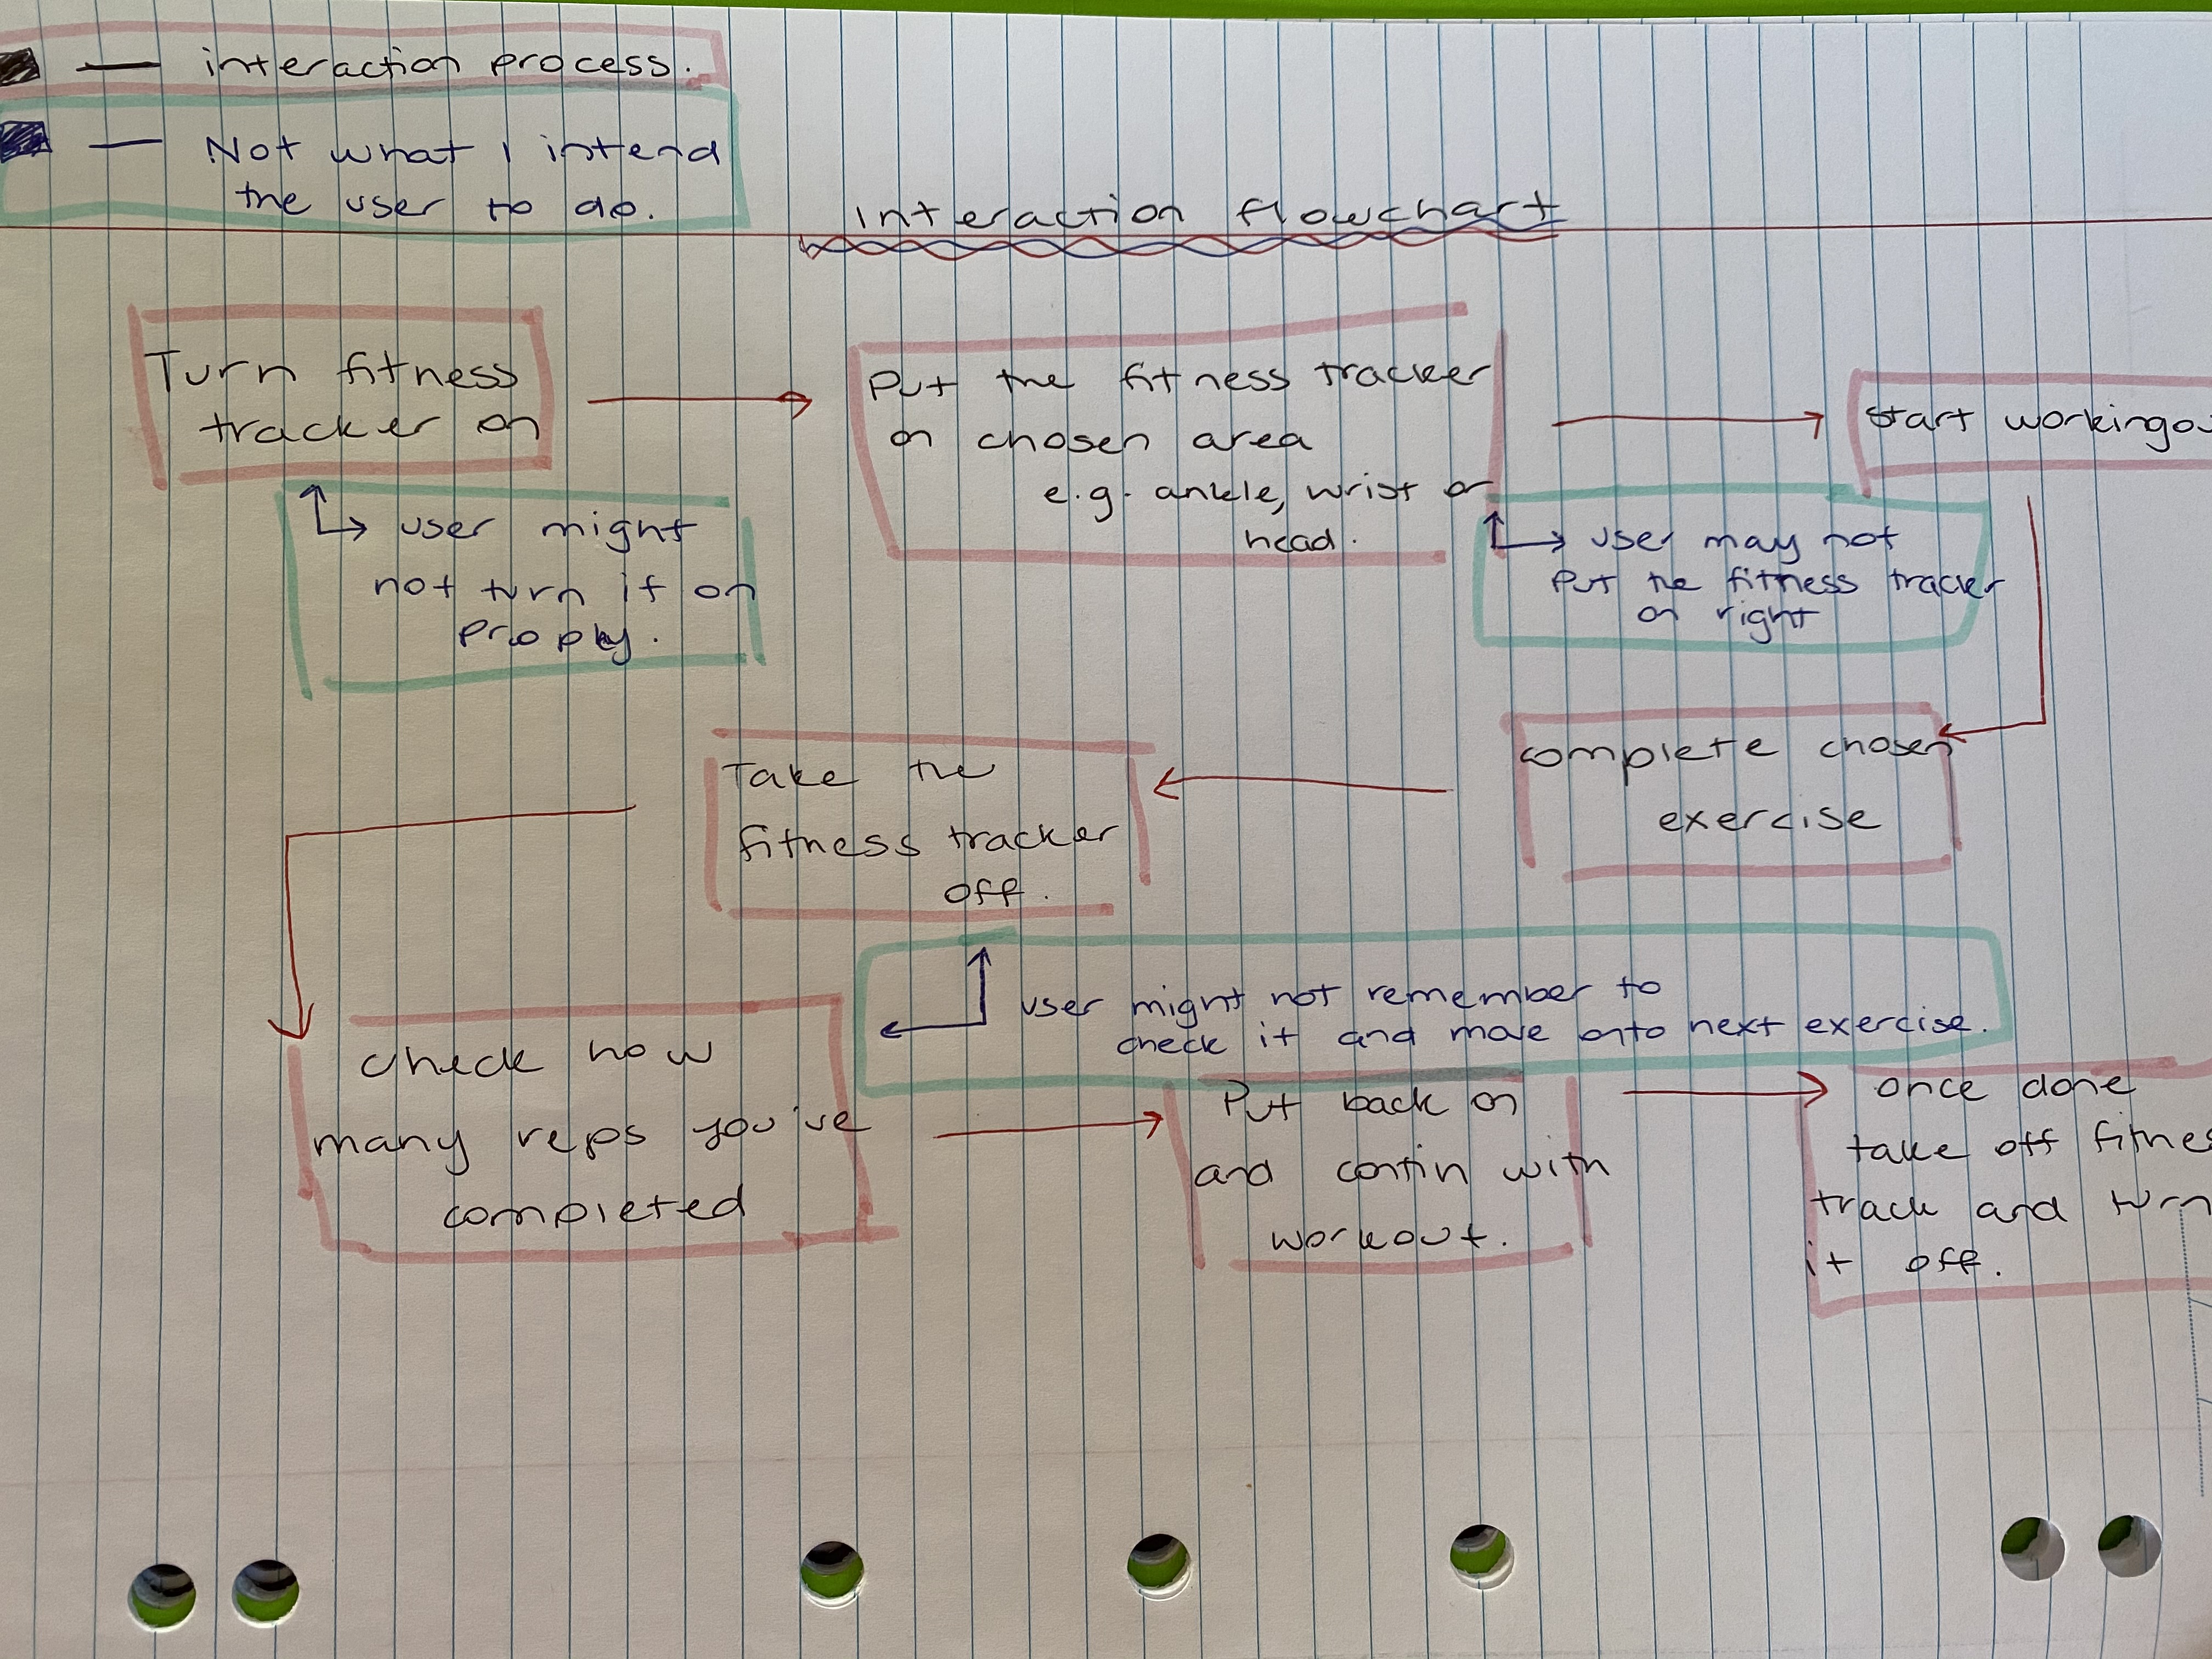 — interaction process.
— Not what I intend
the user to do.
Interaction flowchart
Turn fitness
tracker on
→ user might
not turn it on
proply.
Put the fitness tracker
on chosen area
e.g. ankle, wrist or
head.
→ user may not
Put the fitness tracker
on right
start workingou
complete chosen
exercise
Take the
fitness tracker
off.
user might not remember to
check it and move onto next exercise.
check how
many reps you've
completed
Put back on
and contin with
workout.
once done
take off fitnes
track and turn
it off.